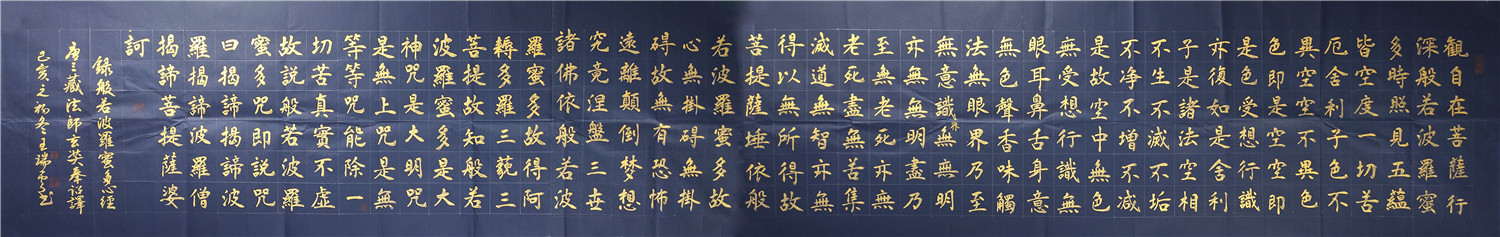 觀自在菩薩行
深般若波羅蜜
多時照見五蘊
皆空度一切苦
厄舍利子色不
異空空不異色
色即是空空即
是色受想行識
亦復如是舍利
子是諸法空相
不生不滅不垢
不净不增不减
是故空中無色
無受想行識無
眼耳鼻舌身意
無色聲香味觸
法無眼界乃至
無意識界無無明
亦無無明盡乃
至無老死亦無
老死盡無苦集
滅道無智亦無
得以無所得故
菩提薩埵依般
若波羅蜜多故
心無掛礙無掛
礙故無有恐怖
遠離顛倒夢想
究竟涅盤三世
諸佛依般若波
羅蜜多故得阿
耨多羅三藐三
菩提故知般若
波羅蜜多是大
神咒是大明咒
是無上咒是無
等等咒能除一
切苦真實不虛
故說般若波羅
蜜多咒即說咒
曰揭諦揭諦波
羅揭諦波羅僧
揭諦菩提薩婆
訶
錄般若波羅蜜多心經
唐三藏法師玄奘奉詔譯
己亥之初冬王瑞